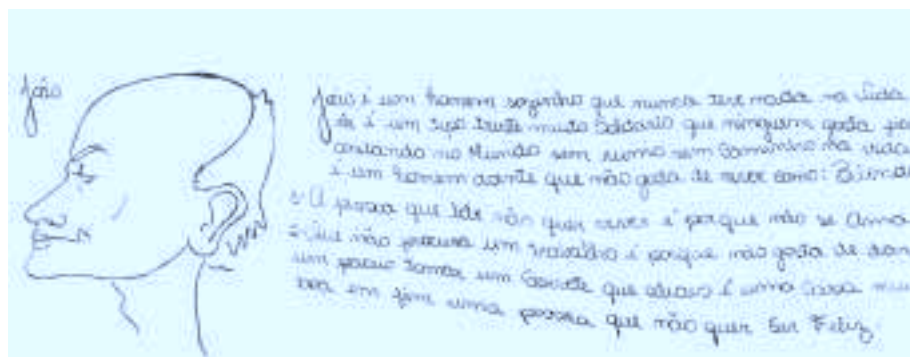 João
João é um homem sozinho que nunca teve nada na vida
ele é um tipo triste muito Solitario que ninguem gosta
andando no Mundo sem rumo sem Caminho na vida
é um homem doente que não gosta de viver como:
A pessoa que não quer viver é porque não se Ama
Que não procura um trabalho é porque não gosta de
um passeio tomar um Sorvete que é uma Coisa
boa em fim uma pessoa que não quer Ser Feliz.